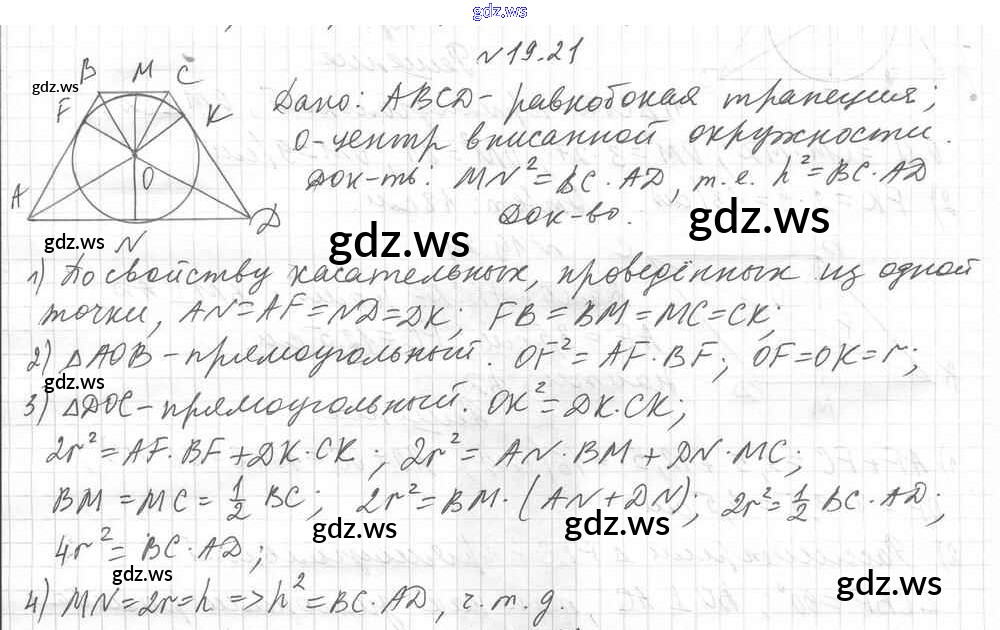 gdz.ws
№19.21
gdz.ws
B M C
F K
Дано: ABCD - равнобокая трапеция;
O - центр вписанной окружности.
Док-ть: MN² = BC · AD, т.е. h² = BC · AD
O
A D
Док-во.
gdz.ws
gdz.ws
gdz.ws
N
1) По свойству касательных, проведённых из одной
точки, AN = AF = ND = DK; FB = BM = MC = CK;
2) △AOB - прямоугольный. OF² = AF · BF; OF = OK = r;
gdz.ws
3) △DOC - прямоугольный. OK² = DK · CK;
2r² = AF · BF + DK · CK; 2r² = AN · BM + DN · MC;
BM = MC = 1/2 BC; 2r² = BM · (AN + DN); 2r² = 1/2 BC · AD;
gdz.ws
gdz.ws
4r² = BC · AD;
gdz.ws
gdz.ws
4) MN = 2r = h => h² = BC · AD, ч.т.д.